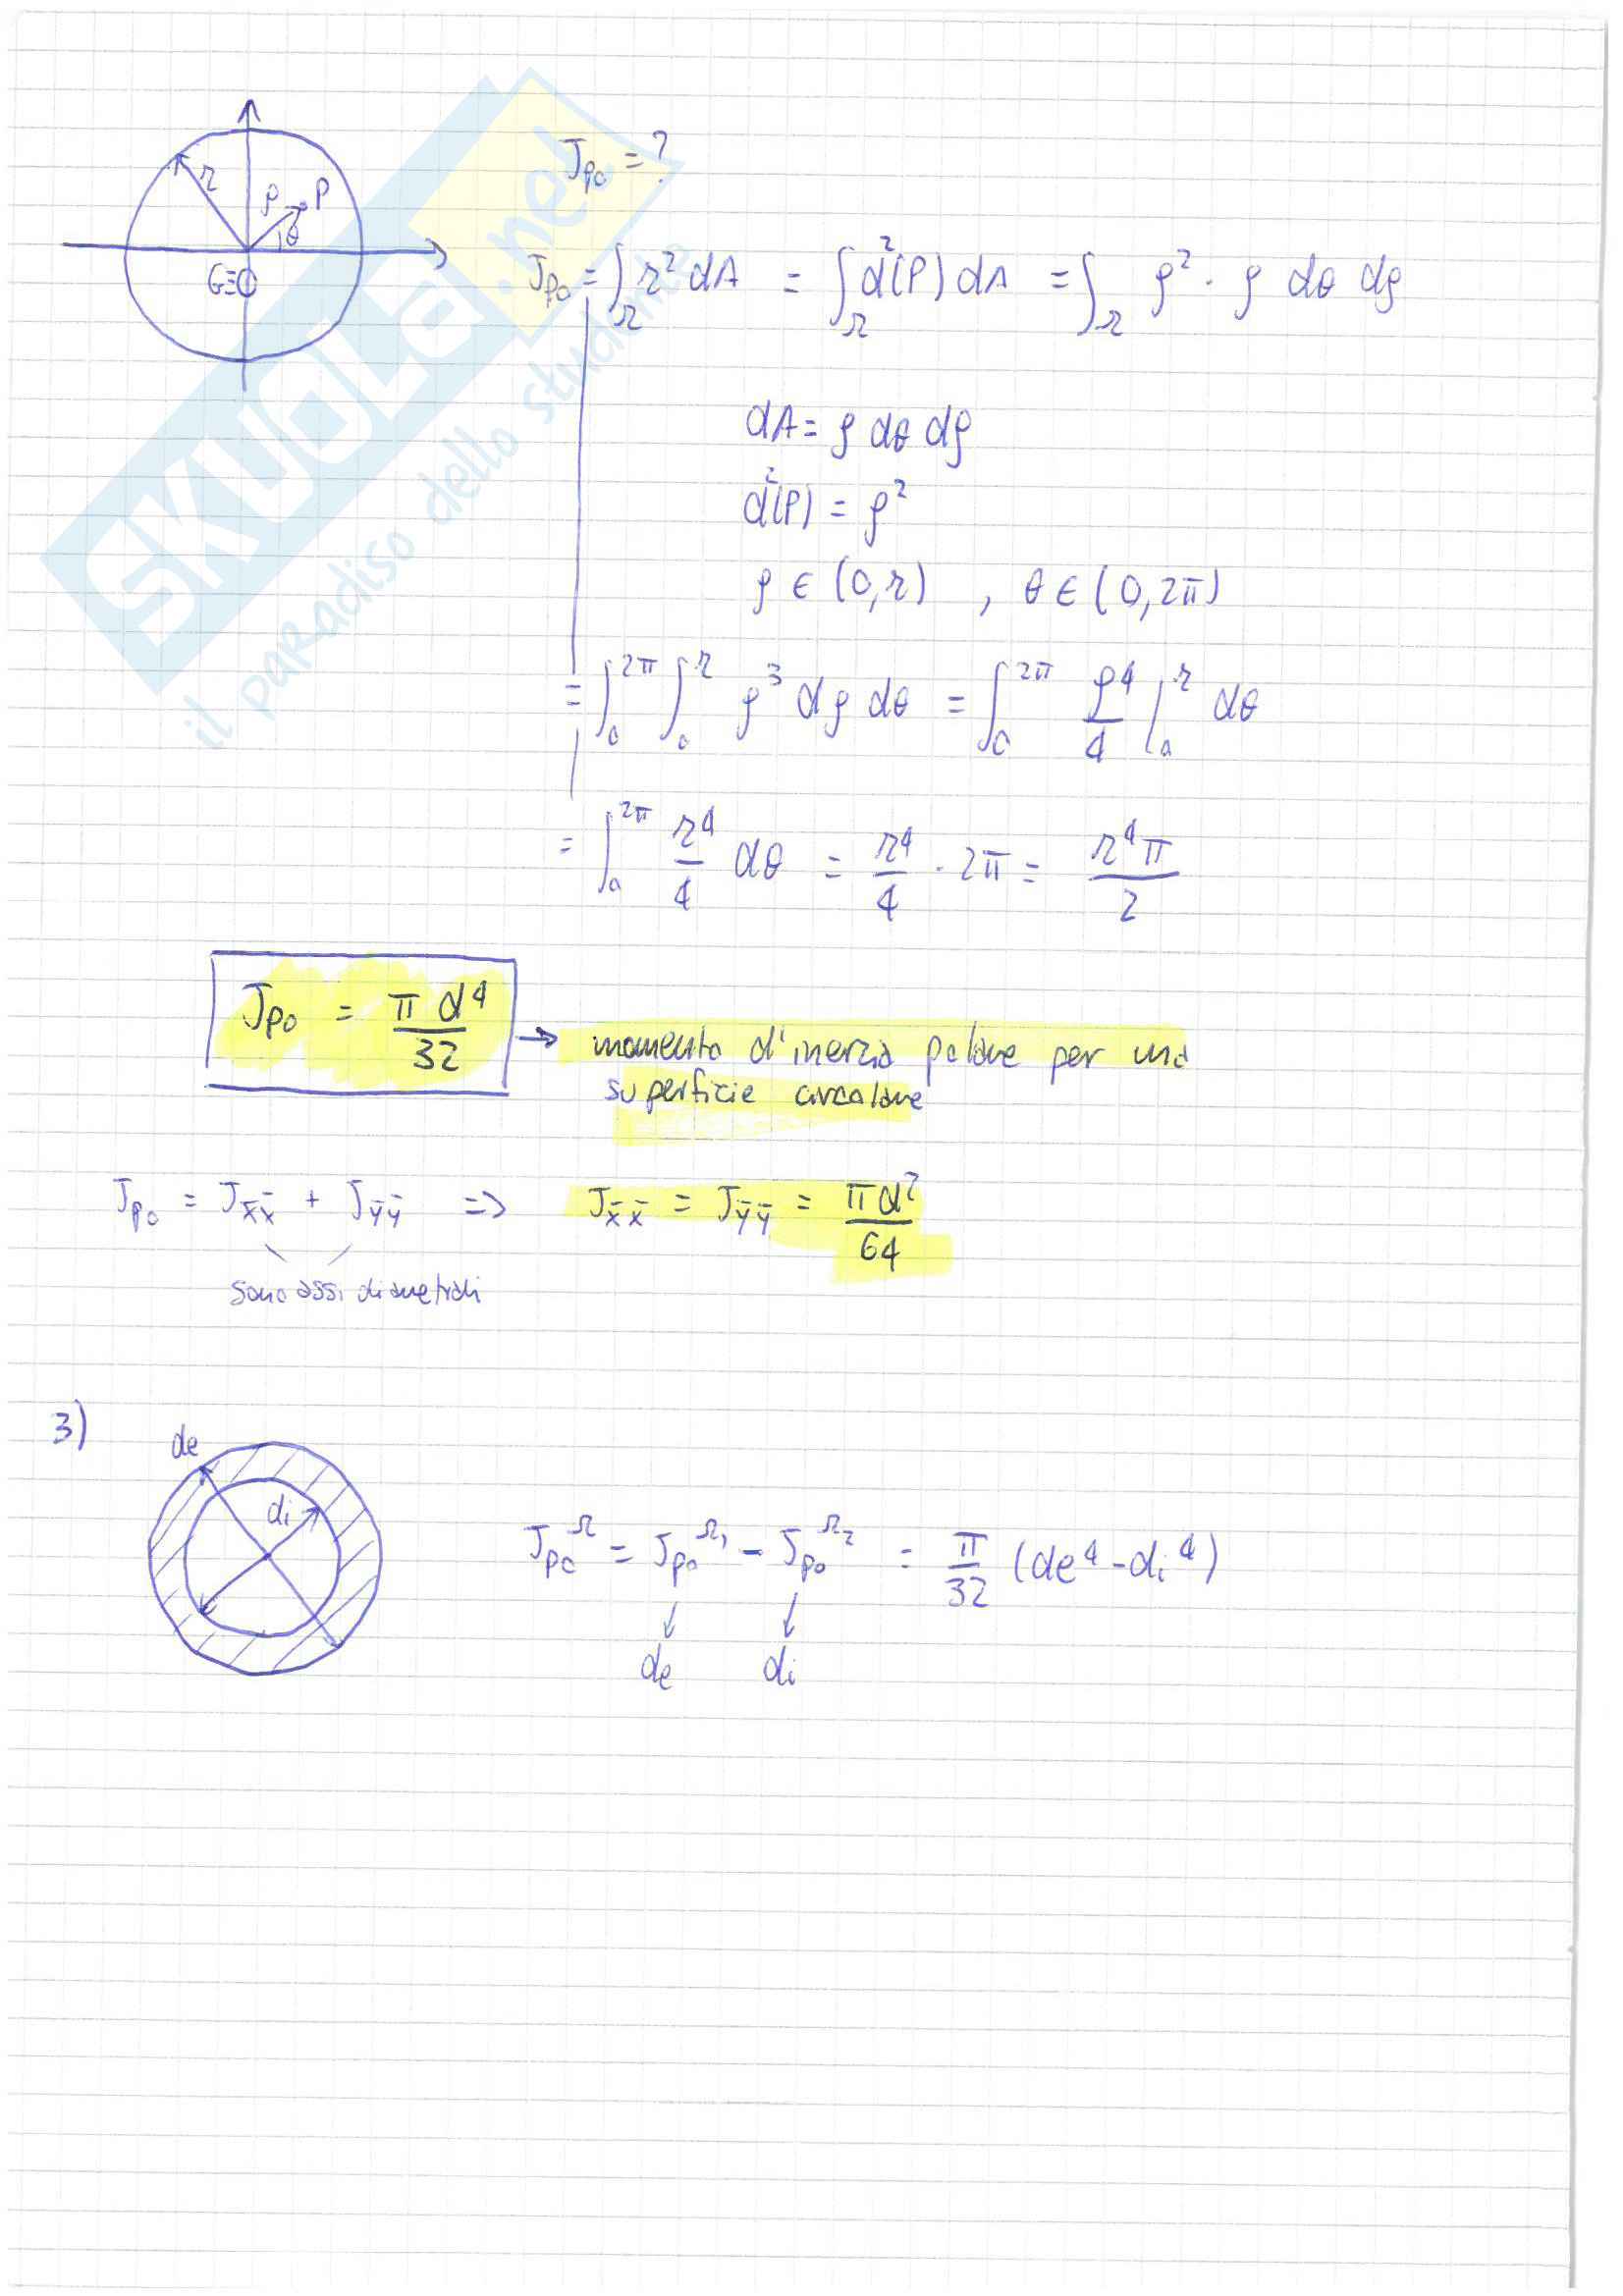 J_po = ?
r
ρ
P
θ
G≡O
J_po = ∫_Ω r² dA = ∫_Ω d²(P) dA = ∫_Ω ρ² · ρ dθ dρ
dA = ρ dθ dρ
d²(P) = ρ²
ρ ∈ (0, r) , θ ∈ (0, 2π)
= ∫_0^2π ∫_0^r ρ³ dρ dθ = ∫_0^2π ρ⁴/4 |_0^r dθ
= ∫_0^2π r⁴/4 dθ = r⁴/4 · 2π = r⁴π/2
J_po = π d⁴/32 → momento d'inerzia polare per una
superficie circolare
J_po = J_x̄x̄ + J_ȳȳ => J_x̄x̄ = J_ȳȳ = πd²/64
sono assi diametrali
3)
de
di
J_po^Ω = J_po^Ω₁ - J_po^Ω₂ = π/32 (de⁴ - di⁴)
↓ ↓
de di
SKUOLa.net
il paradiso dello studente